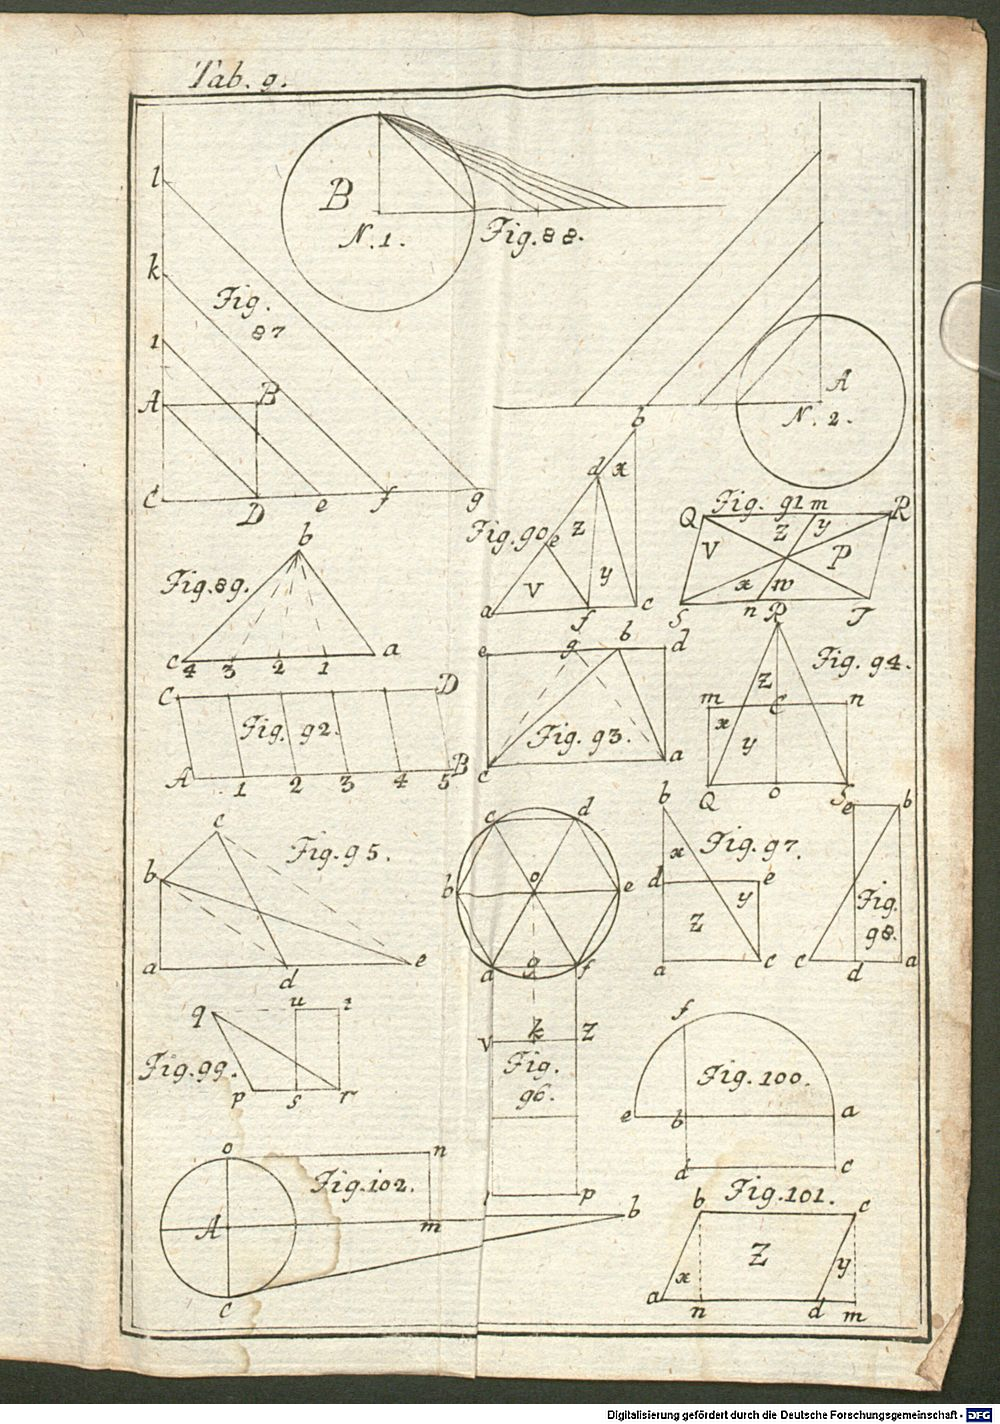 Tab. 9.
l
B
N. 1.
Fig. 88.
k
Fig.
87
i
A
B
A
N. 2.
C
D
e
f
g
b
d
x
Fig. 90.
e
z
v
y
a
f
c
Fig. 91
m
Q
R
z
y
V
P
x
w
S
n
T
b
Fig. 89.
c
4
3
2
1
a
e
g
b
d
Fig. 93.
c
a
R
Fig. 94.
z
m
C
n
x
y
Q
o
S
C
D
Fig. 92.
A
1
2
3
4
5
B
c
Fig. 95.
b
a
d
e
c
d
b
o
e
a
g
f
v
k
z
Fig.
96.
l
p
b
x
Fig. 97.
d
e
y
z
a
c
e
b
Fig.
98.
c
d
a
q
u
t
Fig. 99.
p
s
r
f
Fig. 100.
e
b
a
d
c
o
n
Fig. 102.
A
m
b
c
b
Fig. 101.
c
Z
x
y
a
n
d
m
Digitalisierung gefördert durch die Deutsche Forschungsgemeinschaft - DFG